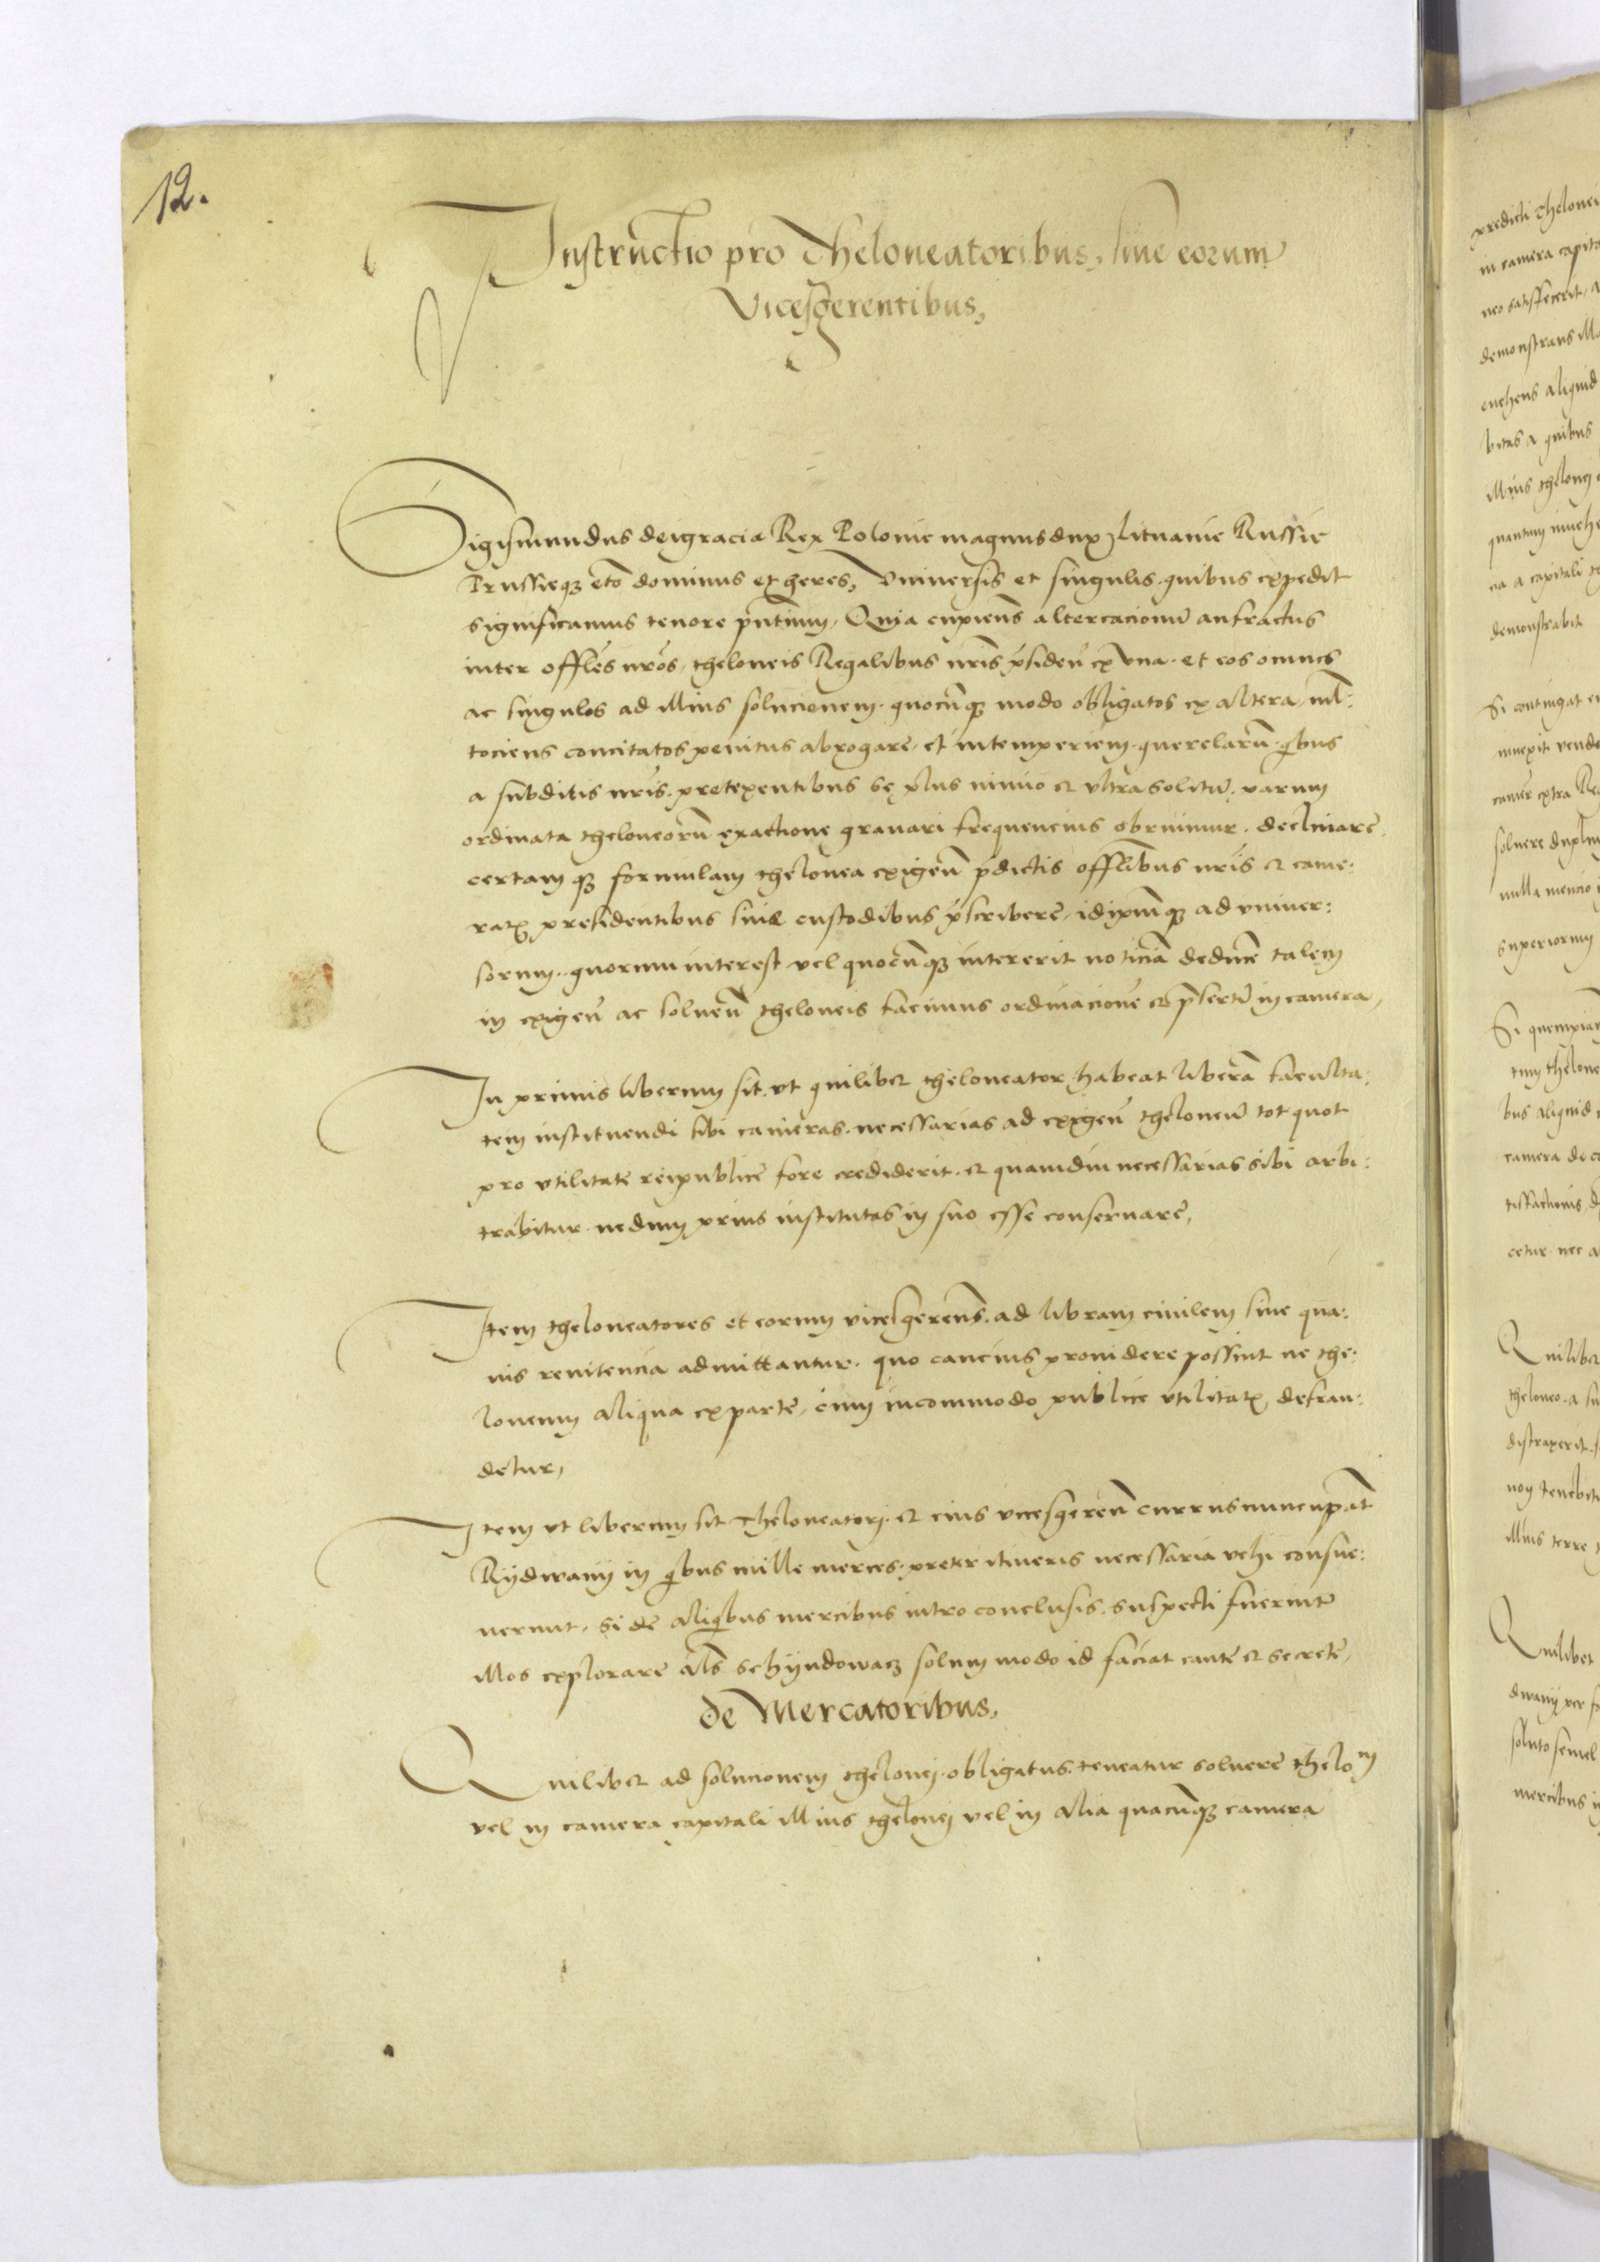 12.
Instructio pro Theloneatoribus, siue eorum
Vicesgerentibus,
Sigismundus deigracia Rex Polonie magnus dux Lituanie Russie
Prussieqз etc̄ dominus et heres, Vniuersis et singulis quibus expedit
significamus tenore pn̄tium, Quia cupiens altercacionū anfractus
inter offles nr̄os, theloneis Regalibus nr̄is p̄siden̄ ex vna et eos omnes
ac singulos ad illius solucionem quocūqз modo obligatos ex altera, ml̄:
tociens concitatos penitus abrogare, et intemperiem querelarū qbus
a subditis nr̄is pretexentibus sę plus nimio et vltra solitū, varum
ordinata theloneorū exactionę grauari frequencius obruimur, declinare,
certamqз formulam thelonea exigen̄ p̄dictis offlibus nr̄is et came:
rarꝫ presidentibus siue custodibus p̄scribere, idipm̄qз ad vniuer:
sorum, quorum interest vel quocūqз intererit noticiā deducē talem
in exigen̄ ac soluen̄ theloneis facimus ordinacionē et p̄sertī in camera,
In primis liberum sit, vt quilibet theloneator habeat liberā faculta:
tem instituendi sibi cameras necessarias ad exigen̄ theloneū tot quot
pro vtilitate reipublice fore crediderit et quamdiu necessarias sibi arbi:
trabitur nedum prius institutas in suo esse conseruare,
Item theloneatores et eorum vicesgeren̄s ad libram ciuilem siue qua:
uis renitencia admittantur, quo caucius prouidere possint ne the:
loneum aliqua ex parte, cum incommodo publice vtilitatꝫ defrau:
detur,
Item vt liberum sit Theloneatori et eius vicesgeren̄ currus nuncupat̄
Rydwany in qbus nulle merces, preter itineris necessaria vehi consue:
uerunt, si de aliqbus mercibus intro conclusis suspecti fuerint
illos explorare als̄ schyndowacz solum modo id faciat caute et secrete,
de Mercatoribus,
Quilibet ad solucionem thelonei obligatus teneatur soluere thelom
vel in camera capitali illius thelonei vel in alia quacūqз camera
predicti Thelonei
in camera capita
neo satisfecerit, a
demonstrans illo
euehens aliquid
bitas a quibus
illius thelonei
quantum inuehe
na a capitali
demonstrabit
Si contingat
camer extra Re
soluere duplu
nulla mencio
superiorum
Si quempiam
tum thelone
bus aliquid
camera de
cetur nec a
Quilibet
theloneo a su
distraxerit,
non tenebit
illius terre
Quilibet
dwany per
soluto semel
mercibus